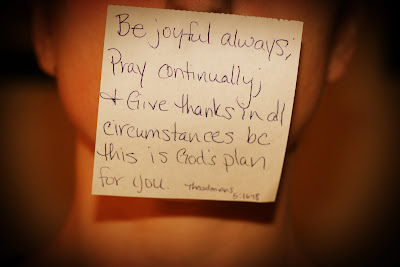 Be joyful always;
Pray continually;
& Give thanks in all
circumstances bc
this is God's plan
for you.